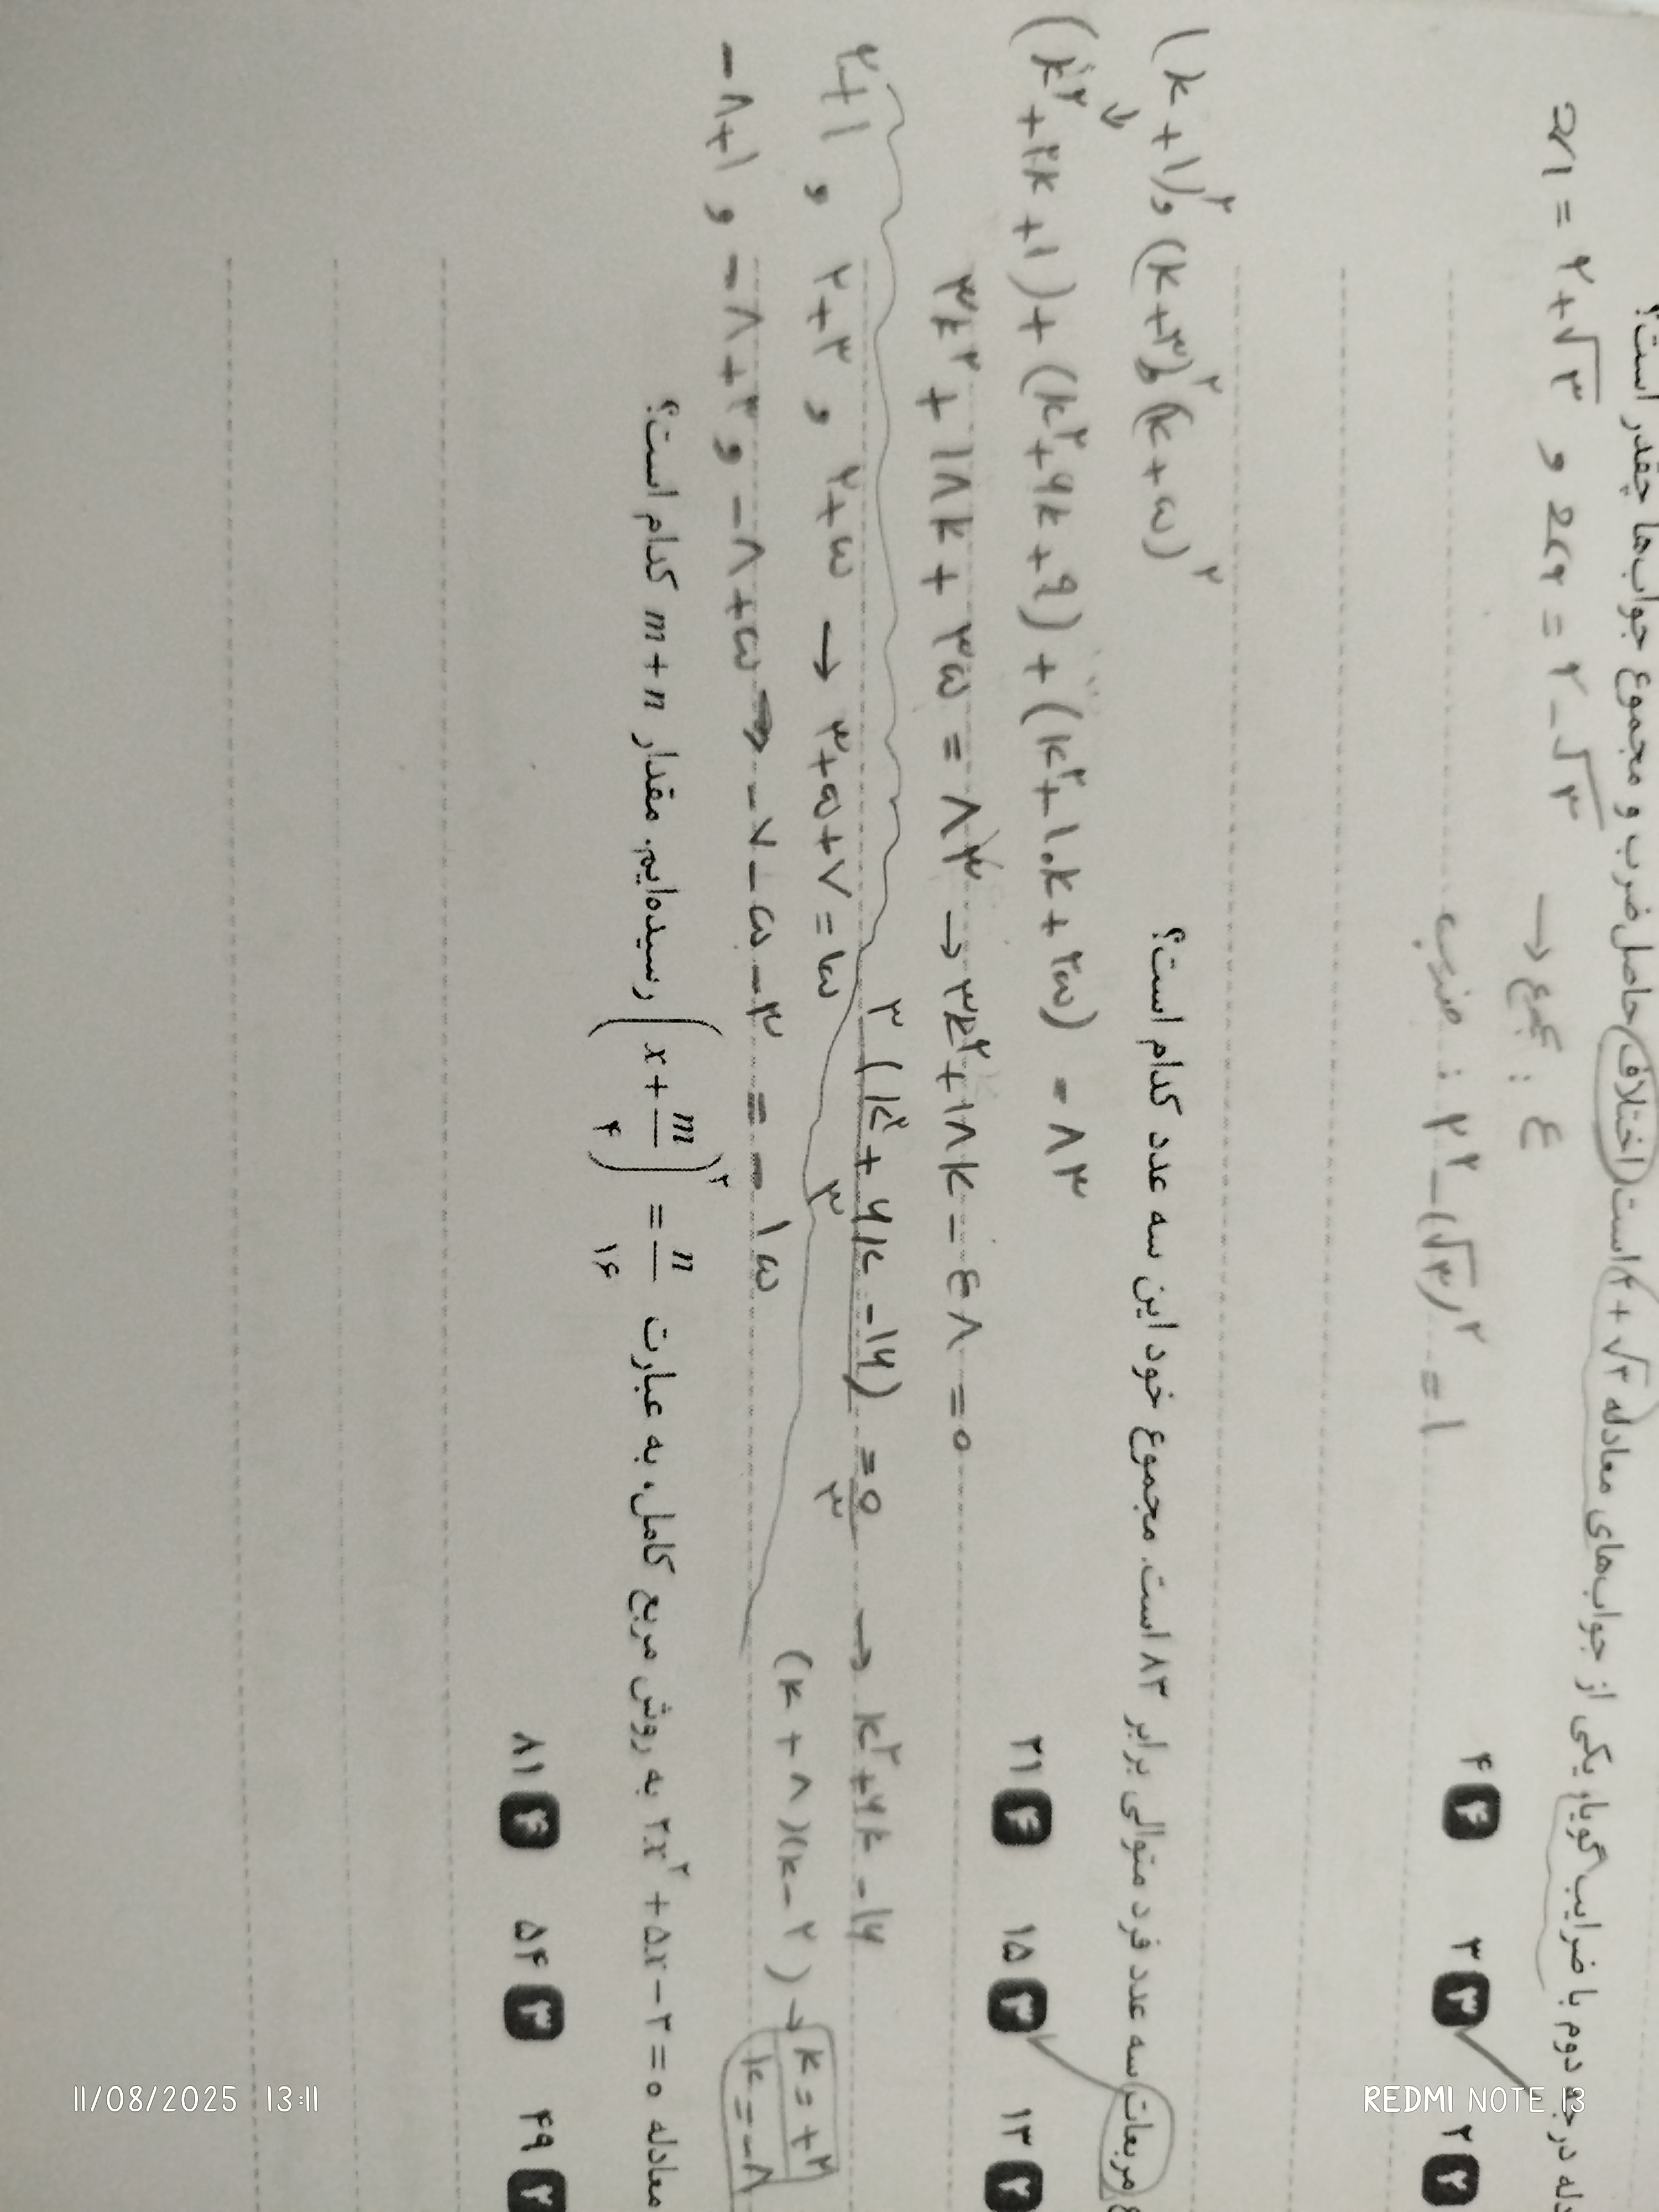 دله درجه دوم با ضرایب گویا، یکی از جواب‌های معادله ۲+√۳ است. اختلاف حاصل‌ضرب و مجموع جواب‌ها چقدر است؟
x۱ = ۲+√۳ و x۲ = ۲-√۳ → جمع : ۴
ضرب : ۲^۲ - (√۳)^۲ = ۱
۲ ۲ ۳ ۳ ۴ ۴
مربعات سه عدد فرد متوالی برابر ۸۳ است. مجموع خود این سه عدد کدام است؟
(k+۱)^۲ و (k+۳)^۲ و (k+۵)^۲
(k^۲+۲k+۱)+(k^۲+۶k+۹)+(k^۲+۱۰k+۲۵) = ۸۳
۲ ۱۳ ۳ ۱۵ ۴ ۲۱
۳k^۲+۱۸k+۳۵=۸۳ → ۳k^۲+۱۸k-۴۸=۰
۳(k^۲+۶k-۱۶)/۳ = ۰/۳ → k^۲+۶k-۱۶
(k+۸)(k-۲) → k=+۲
k=-۸
۲+۱ , ۲+۳ , ۲+۵ → ۳+۵+۷=۱۵
-۸+۱ , -۸+۳ , -۸+۵ → -۷-۵-۳ = -۱۵
معادله ۲x^۲+۵x-۳=۰ به روش مربع کامل، به عبارت (x+m/۴)^۲=n/۱۶ رسیده‌ایم. مقدار m+n کدام است؟
۲ ۴۹ ۳ ۵۴ ۴ ۸۱
REDMI NOTE 13
11/08/2025 13:11